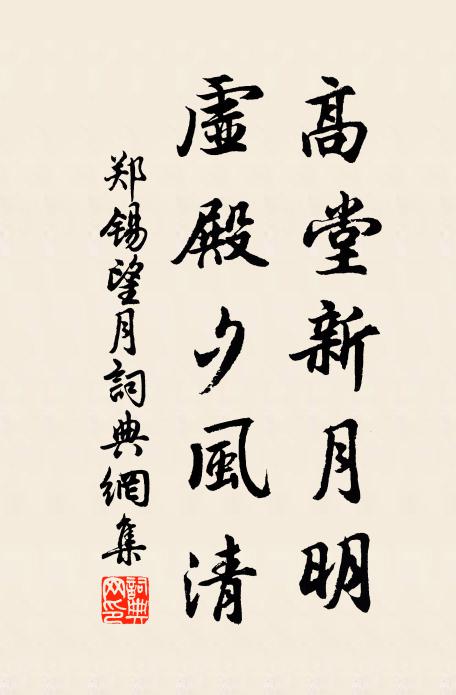 高堂新月明
虛殿夕風清
郑锡望月詞典網集
詞典网印